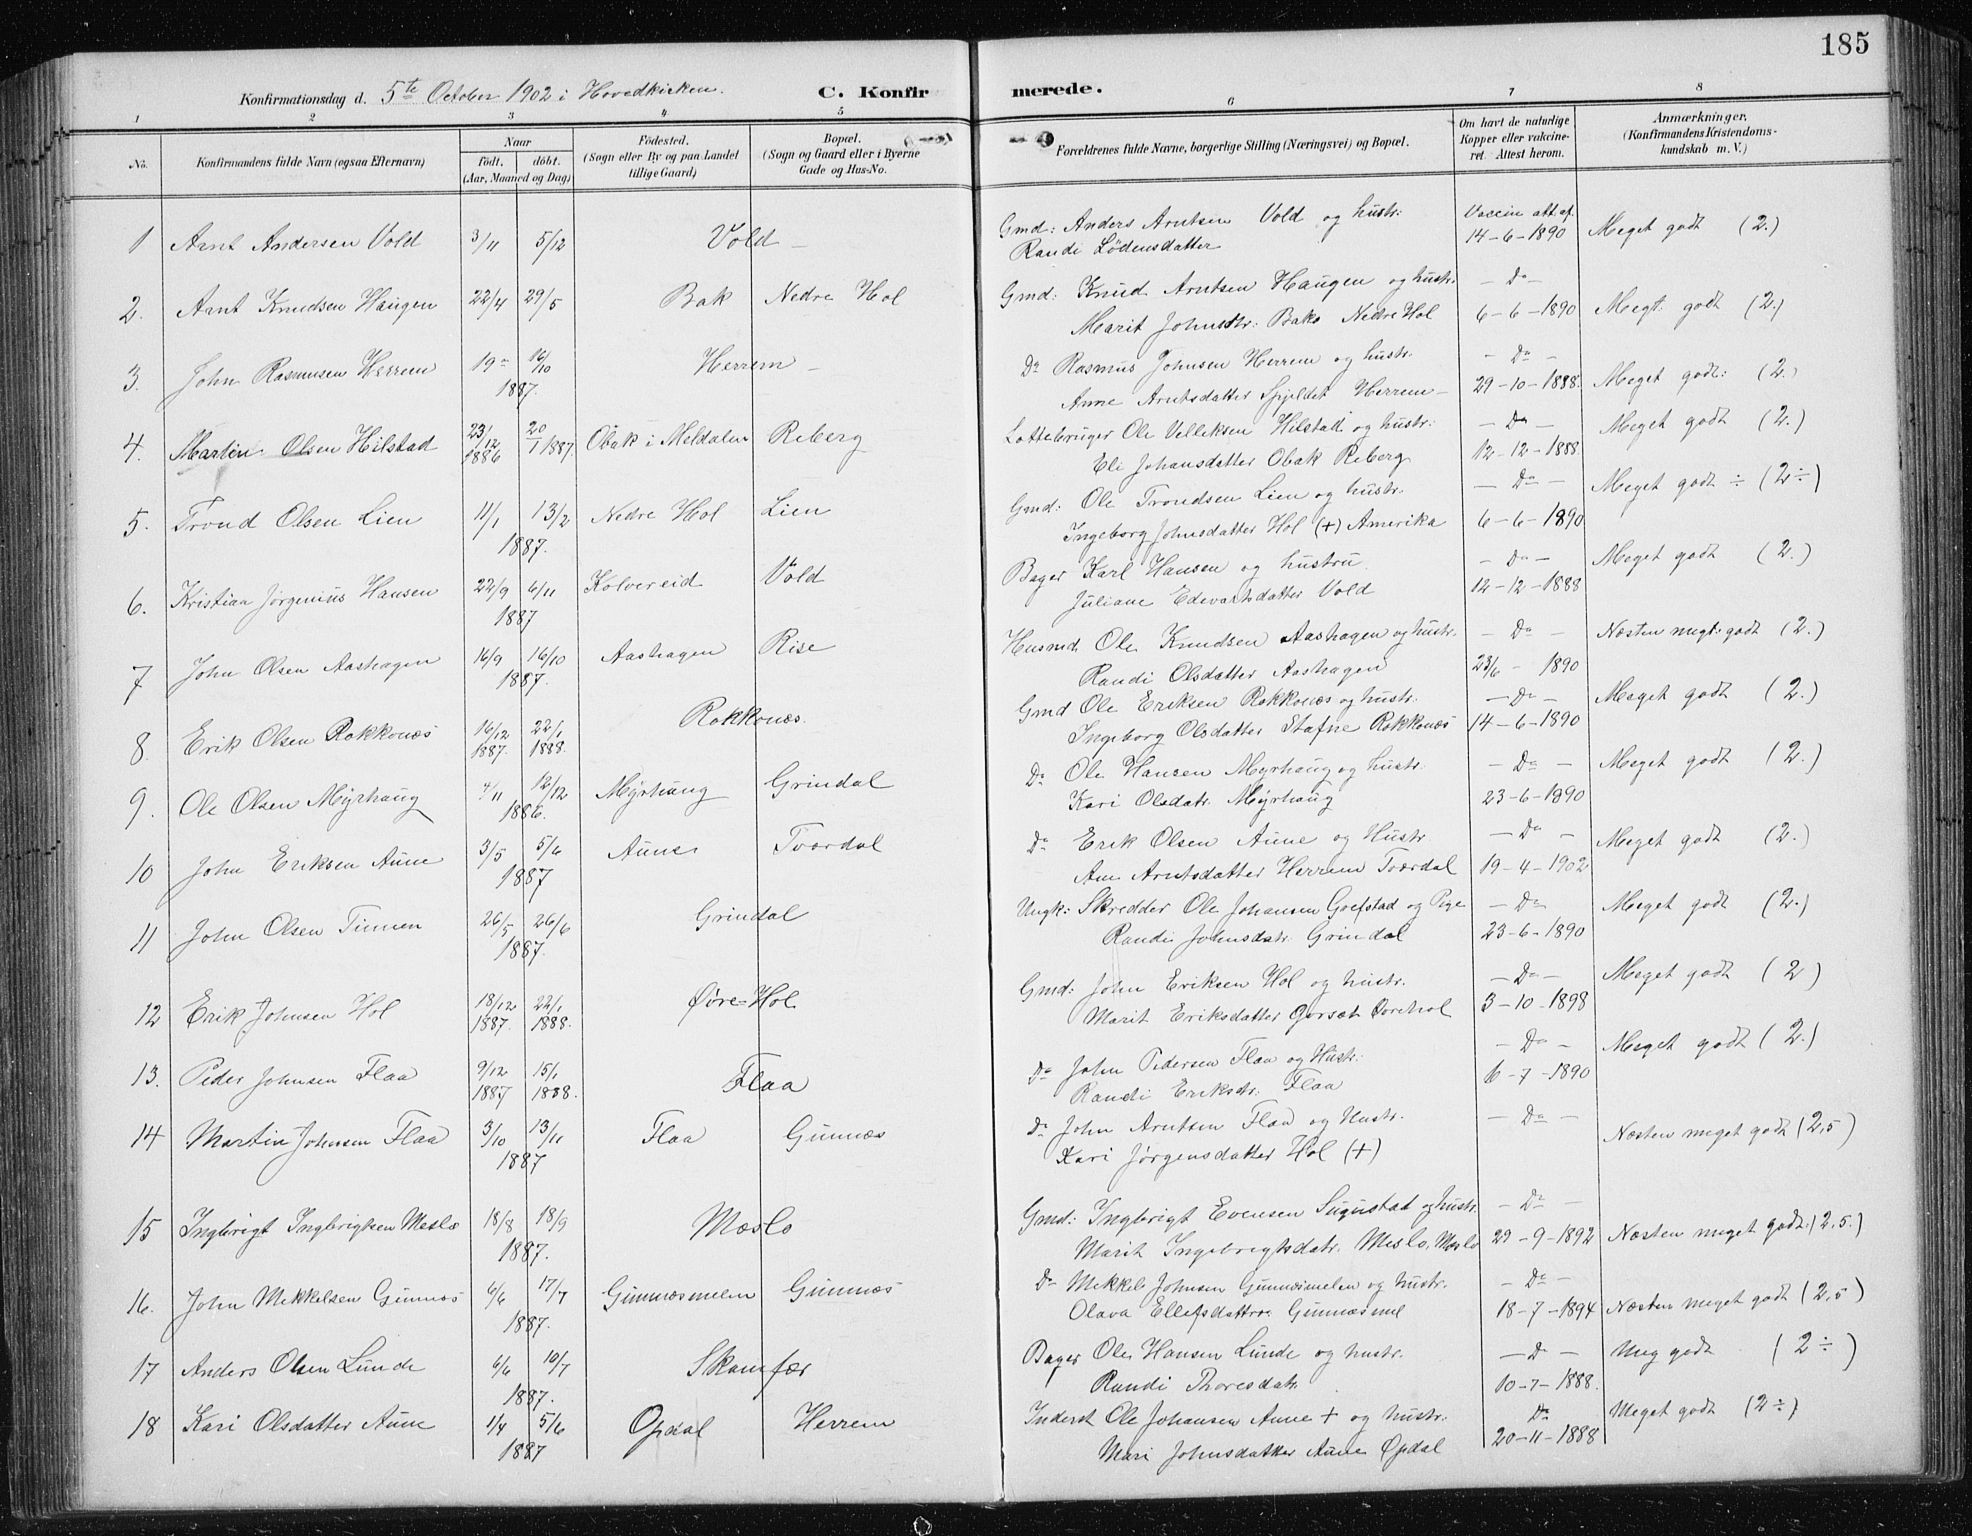 185
Konfirmationsdag d. 5te October 1902 i Hovedkirken. C. Konfirmerede.
1 2 3 4 5 6 7 8
No. Konfirmandens fulde Navn (ogsaa Efternavn) Naar født. døbt. (Aar, Maaned og Dag) Fødested. (Sogn eller By og paa Landet tillige Gaard) Bopæl. (Sogn og Gaard eller i Byerne Gade og Hus-No. Forældrenes fulde Navne, borgerlige Stilling (Næringsvei) og Bopæl. Om havt de naturlige Kopper eller vakcineret. Attest herom. Anmærkninger. (Konfirmandens Kristendomskundskab m. V.)
1 Arnt Andersen Vold 3/11 5/12 Vold – Gmd: Anders Arntsen Vold og hustr: Vaccin att. af. Meget godt (2.)
Randi Lödensdatter 14-6-1890
2. Arnt Knudsen Haugen 22/4 29/5 Bak Nedre Hol Gmd: Knud Arntsen Haugen og hustr. – Do – Megt: godt (2.)
Marit Johnsdtr: Bakø Nedre Hol 6-6-1890
3. John Rasmusen Herrem 19 – 16/10 1887. Herrem – Do Rasmus Johnsen Herrem og hustr. – Do – Meget godt: (2.)
Anne Arntsdatter Spjeldet Herrem – 29-10-1888.
4. Martin Olsen Hilstad 23/12 1886 20/1 1887. Obak i Meldalen Reberg Lottebruger Ole Velleksen Hilstad og hustr: – Do – Meget godt (2.)
Eli Johansdatter Obak Reberg 12-12-1888.
5. Trond Olsen Lien 11/1 13/2 1887. Nedre Hol Lien Gmd: Ole Trondsen Lien og hustr. – Do – Meget godt ÷ (2÷)
Ingeborg Johnsdatter Hol (+) Amerika 6-6-1890
6. Kristian Jørgenius Hansen 22/9 6/11 1887 Kolvereid Vold Bager Karl Hansen og hustru – Do – Meget godt (2.)
Juliane Edevartsdatter Vold 12-12-1888
7 John Olsen Aashagen 16/9 16/10 1887. Aashagen Rise Husmd. Ole Knudsen Aashagen og hustr. – Do – Næsten megt: godt (2.)
Randi Olsdatter Aashagen 23/6 - 1890
8 Erik Olsen Rokkonæs 16/12 1887. 22/1 1888. Rokkonæs. Gmd Ole Eriksen Rokkonæs og hustr. – Do – Meget godt (2.)
Ingeborg Olsdatter Stafne Rokkonæs 14-6-1890
9. Ole Olsen Myrhaug 4/11 12/12 1886. Myrhaug Grindal Do Ole Hansen Myrhaug og hustr. – Do – Meget godt (2.)
Kari Olsdatr. Myrhaug 23-6-1890
10 John Eriksen Aune 3/5 5/6 1887 Aune Tvordal Do Erik Olsen Aune og Hustr. – Do – Meget godt (2.)
Ane Arntsdatter Herrem Tværdal 19-4-1902
11 John Olsen Tinnen 26/5 26/6 1887. Grindal Ungk: Skredder Ole Johansen Goefstad og Pige – Do – Meget godt (2.)
Randi Johnsdatr. Grindal 23-6-1890
12 Erik Johnsen Hol 18/12 1887. 22/1 1888. Øvre Hol Gmd: John Eriksen Hol og hustr. – Do – Meget godt (2)
Marit Eriksdatter Gorset Ovrehol 3-10-1898
13. Peder Johnsen Flaa 9/12 1887 15/1 1888. Flaa Do John Pedersen Flaa og Hustr: – Do – Meget godt (2.)
Randi Eriksdr. Flaa 6-7-1890
14 Martin Johnsen Flaa 3/10 13/11 1887 Flaa Gunnæs Do John Arntsen Flaa og Hustr. – Do – Næsten meget godt (2,5)
Kari Jørgensdatter Hol (+)
15 Ingbrigt Ingbrigtsen Meslo 18/8 18/9 1887. Mæslo Gmd: Ingbrigt Evensen Sugustad og hustr. – Do – Næsten meget godt: (2,5.)
Marit Ingebregtsdatr. Meslo, Mæslo 29-9-1892
16. John Mekkelsen Gunnæs 6/6 17/7 1887. Gunnæsmelen Gunnæs Do Mekkel Johnsen Gunnæsmelen og hustr. – Do – Næsten meget godt (2,5)
Olava Ellefsdatter Gunnæsmel 18-7-1894
17 Anders Olsen Lunde 6/6 10/7 1887. Skamfær Bager Ole Hansen Lunde og hustr. – Do – Meg godt (2÷)
Randi Thoresdatr. 10-7-1888.
18 Kari Olsdatter Aune 1/4 5/6 1887 Opdal Herrem Inderst Ole Johansen Aune + og hustr. Do Meget godt (2÷)
Mari Johnsdatter Aune Opdal 20-11-1888